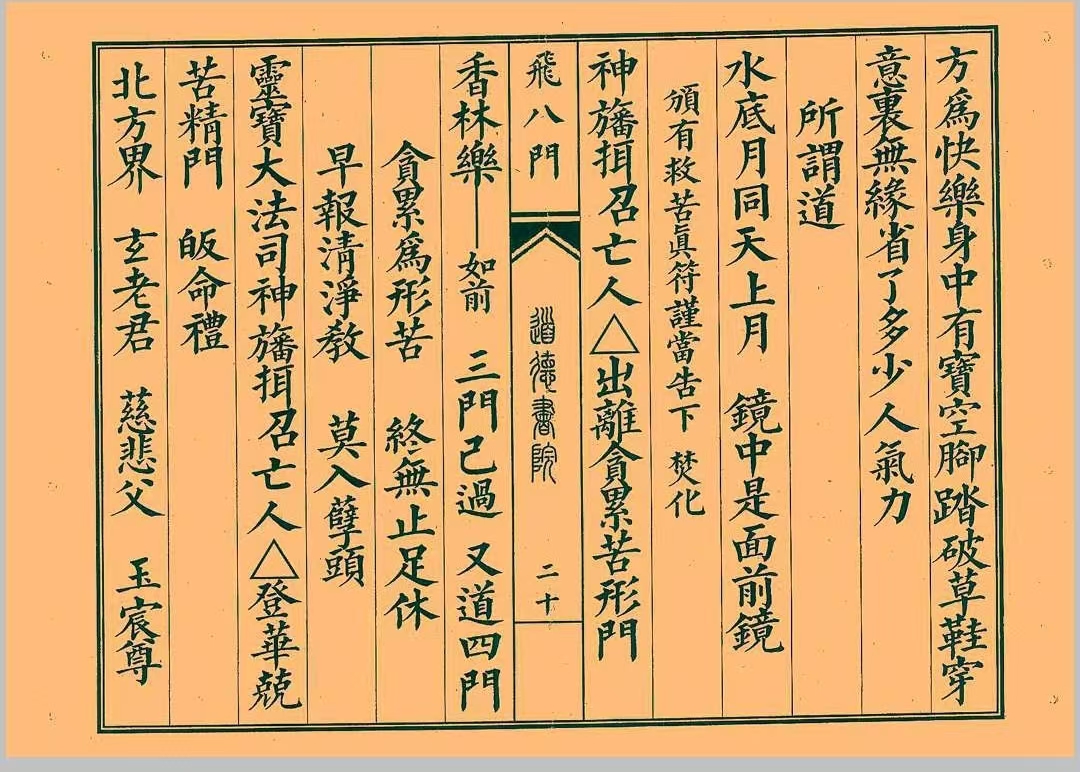 方爲快樂身中有寶空腳踏破草鞋穿
意裏無緣省了多少人氣力
所謂道
水底月同天上月 鏡中是面前鏡
頒有救苦眞符謹當告下 焚化
神旛捐召亡人△出離貪累苦形門
飛八門 道德書院 二十
香林樂——如前 三門已過 又道四門
貪累爲形苦 終無止足休
早報清淨教 莫入孽頭
靈寶大法司神旛捐召亡人△登華兢
苦精門 皈命禮
北方界 玄老君 慈悲父 玉宸尊